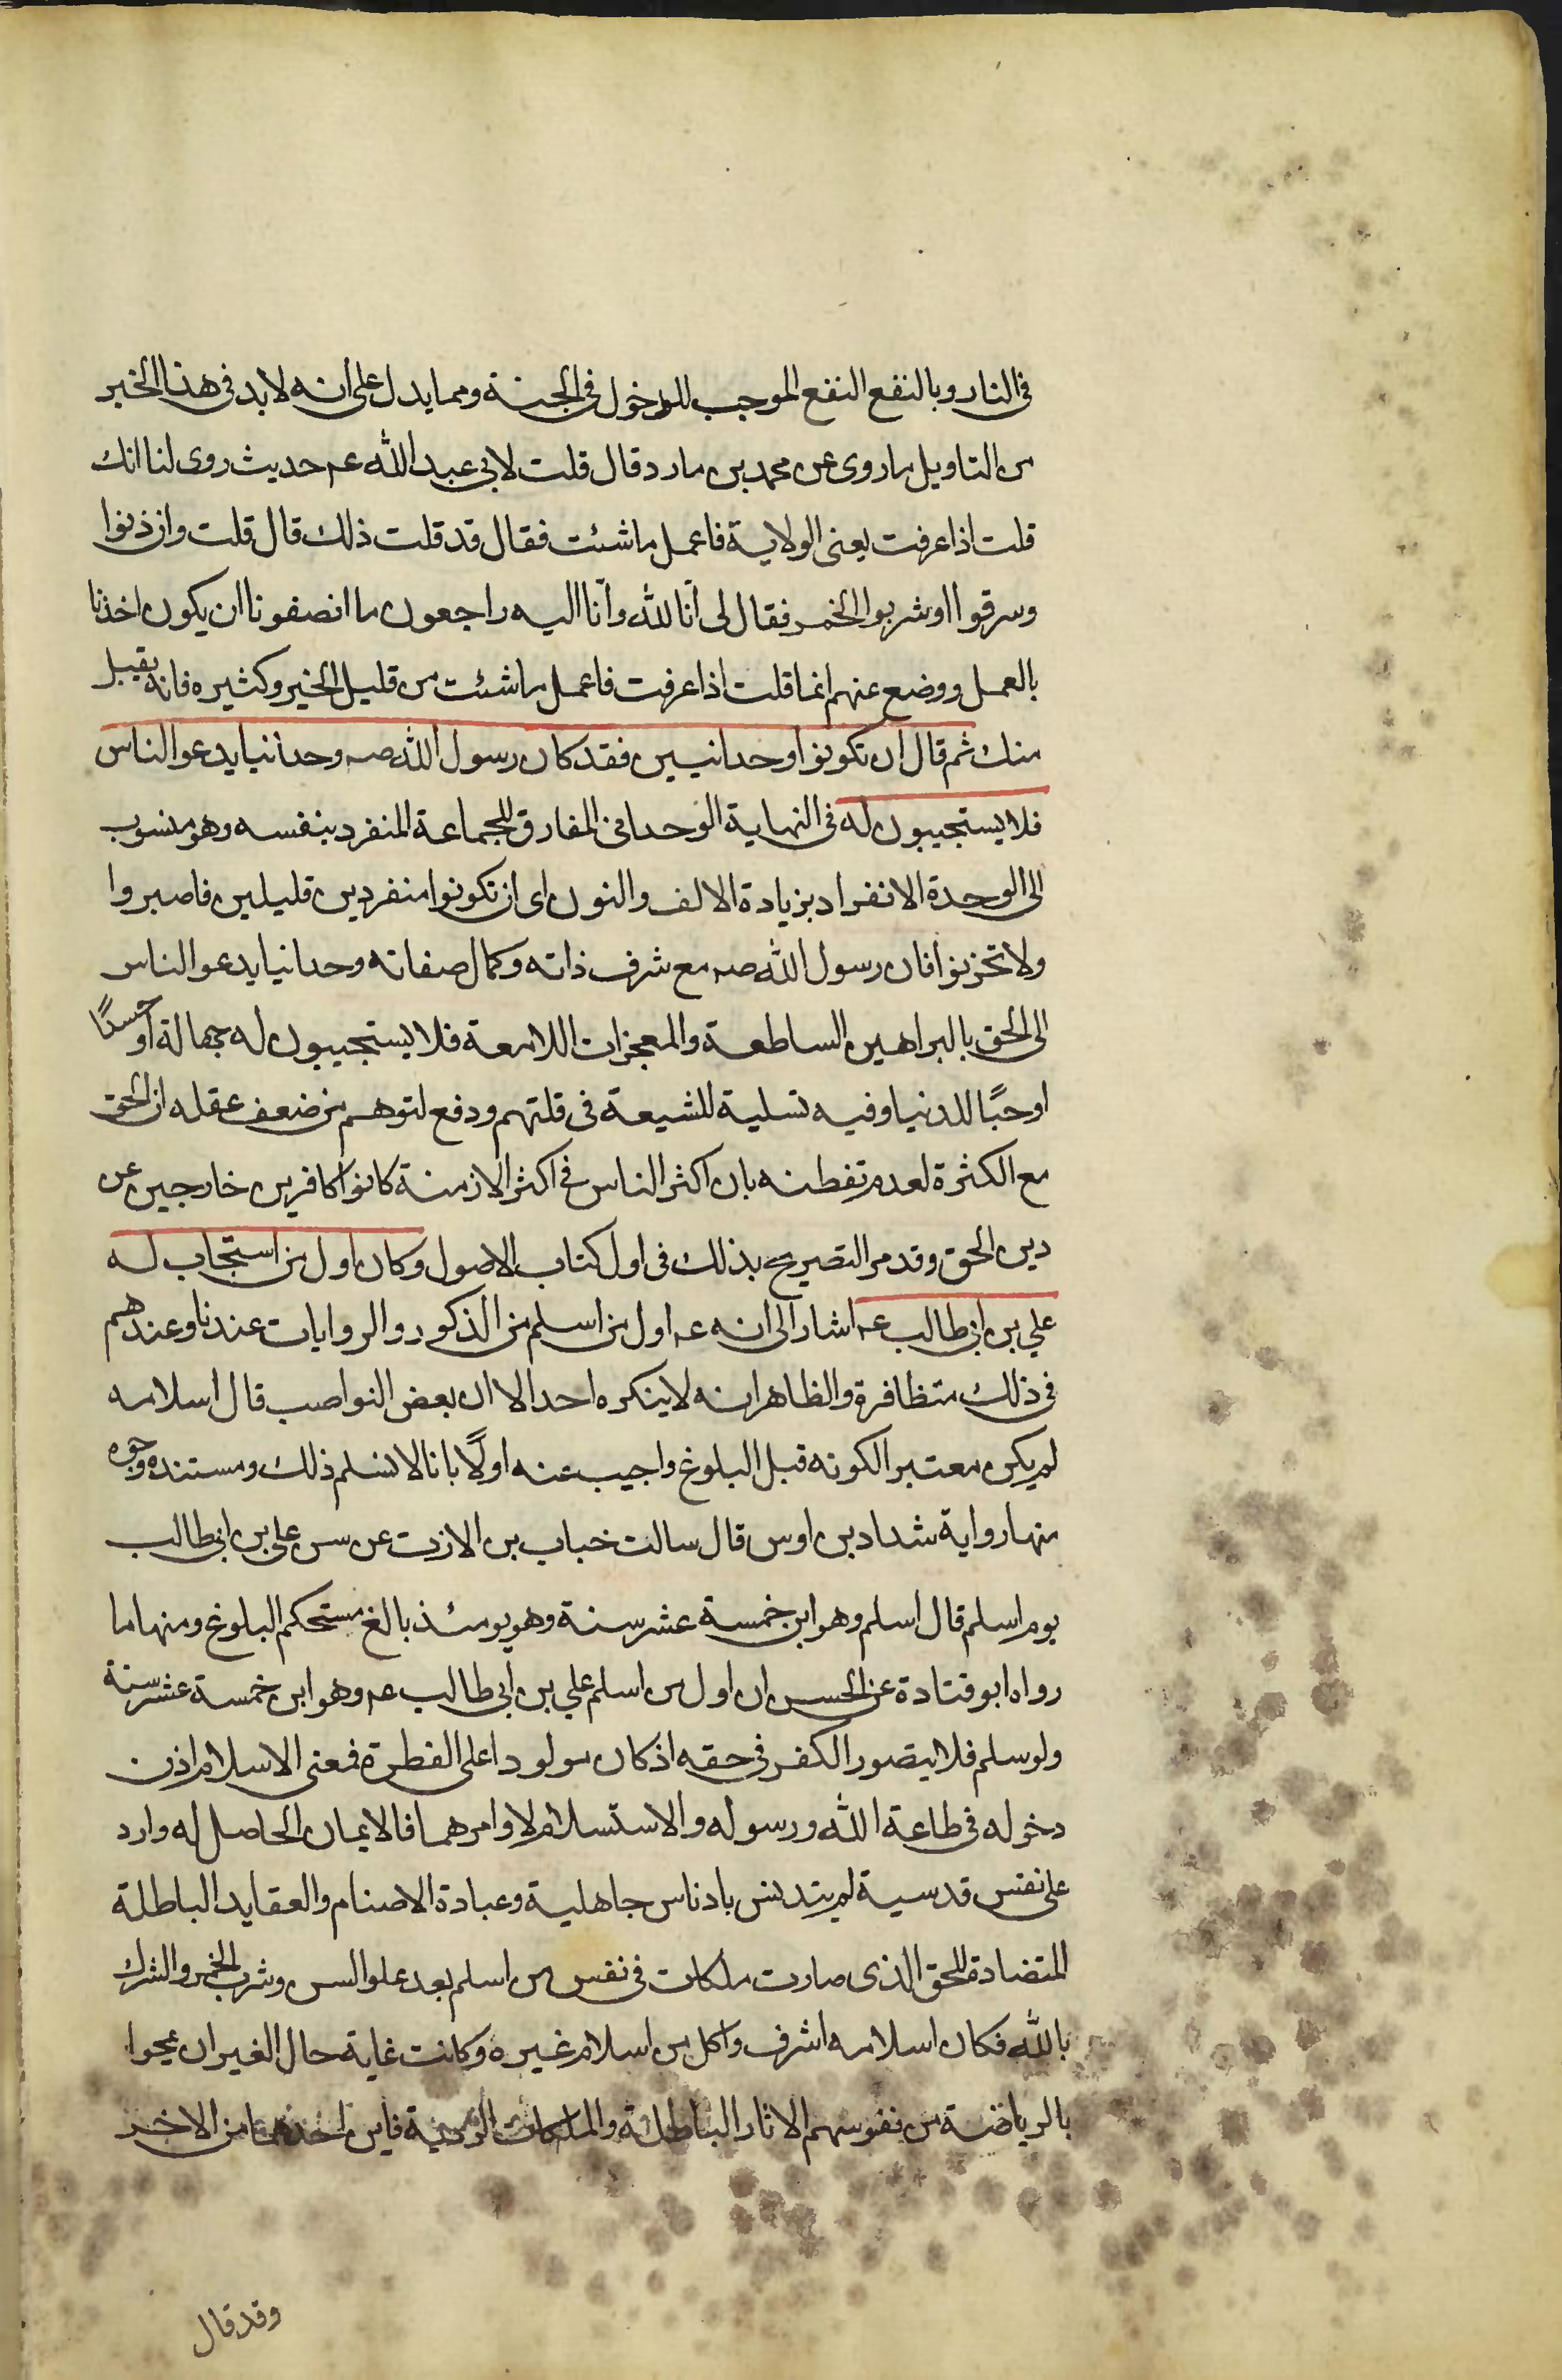 في النار وبالنفع النفع الموجب للدخول في الجنة ومما يدل على أنه لا بد في هذا الخبر
من التاويل ما روى عن محمد بن مارد قال قلت لابي عبد الله عم حديث روى لنا انك
قلت اذا عرفت يعنى الولاية فاعمل ما شئت فقال قد قلت ذلك قال قلت وان زنوا
وسرقوا او شربوا الخمر فقال لى انّا لله وانّا اليه راجعون ما انصفونا ان يكون اخذنا
بالعمل ووضع عنهم انما قلت اذا عرفت فاعمل ما شئت من قليل الخير وكثيره فانه يقبل
منك ثم قال ان تكونوا وحدانيين فقد كان رسول الله صه وحدانيا يدعو الناس
فلا يستجيبون له في النهاية الوحدانى المفارق للجماعة المنفرد بنفسه وهو منسوب
الى الوحدة الانفراد بزيادة الالف والنون اى ان تكونوا منفردين قليلين فاصبروا
ولا تحزنوا فان رسول الله صه مع شرف ذاته وكمال صفاته وحدانيا يدعو الناس
الى الحق بالبراهين الساطعة والمعجزات اللامعة فلا يستجيبون له جهالة او حسدًا
او حبًا للدنيا وفيه تسلية للشيعة في قلتهم ودفع لتوهم من ضعف عقله ان الحق
مع الكثرة لعدم تفطنه بان اكثر الناس في اكثر الازمنة كانوا كافرين خارجين عن
دين الحق وقد مر التصريح بذلك في اول كتاب الاصول وكان اول من استجاب له
علي بن ابي طالب عم اشار الى انه عم اول من اسلم من الذكور والروايات عندنا وعندهم
في ذلك متظافرة والظاهر انه لا ينكره احد الا ان بعض النواصب قال اسلامه
لم يكن معتبرا لكونه قبل البلوغ واجيب عنه اولًا بانا لا نسلم ذلك ومستنده وجوه
منها رواية شداد بن اوس قال سالت خباب بن الازت عن سن علي بن ابي طالب
يوم اسلم قال اسلم وهو ابن خمسة عشر سنة وهو يومئذ بالغ مستحكم البلوغ ومنها ما
رواه ابو قتادة عن الحسن ان اول من اسلم علي بن ابي طالب عم وهو ابن خمسة عشر سنة
ولو سلم فلا يتصور الكفر في حقه اذ كان مولودا على الفطرة فمعنى الاسلام اذن
دخوله في طاعة الله ورسوله والاستسلام لاوامرهما فالايمان الحاصل له وارد
على نفس قدسية لم يتدنس بادناس جاهلية وعبادة الاصنام والعقايد الباطلة
المتضادة للحق الذى صارت ملكات في نفس من اسلم بعد علو السن وشرب الخمر والشرك
بالله فكان اسلامه اشرف واكمل من اسلام غيره وكانت غاية حال الغير ان يمحوا
بالرياضة من نفوسهم الاثار الباطلة والملكات الردية فاين احدهما من الاخر
وقد قال